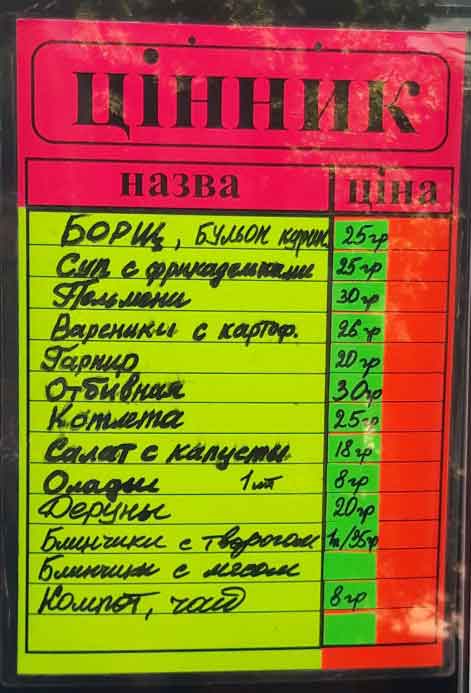 ЦІННИК
назва ціна
Борщ, бульон курин 25гр
Суп с фрикадельками 25гр
Пельмени 30гр
Вареники с картоф. 26гр
Гарнир 20гр
Отбивная 30гр
Котлета 25гр
Салат с капусты 18гр
Олады 1шт 8гр
Деруны 20гр
Блинчики с творогом 1п/35гр
Блинчики с мясом
Компот, чай 8гр